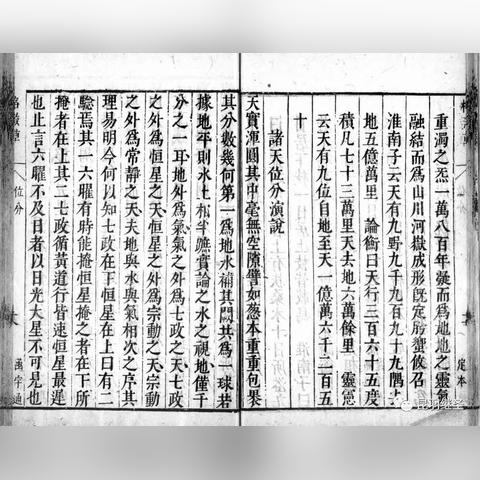 重濁之炁一萬八百年凝而爲地地之靈氣
融結而爲山川河嶽成形既定肹蠁攸召
淮南子云天有九野九千九百九十九隅去
地五億萬里　論衡曰天行三百六十五度
積凡七十三萬里天去地六萬餘里　靈憲
云天有九位自地至天一億萬六千二百五
十
諸天位分演說
天實渾圓其中毫無空隙譬如葱本重重包裹
其分數幾何第一爲地水補其闕共爲一球若
據地平則水土相半膴實論之水之視地僅千
分之一耳地外爲氣氣之外爲七政之天七政
之外爲恒星之天恒星之外爲宗動之天宗動
之外爲常靜之天夫地與水與氣相次之序其
理易明今何以知七政在下恒星在上曰有二
驗焉其一六曜有時能掩恒星掩之者在下所
掩者在上其二七政循黃道行皆速恒星最遲
也止言六曜不及日者以日光大星不可見也
格致草
位分
函宇通
定本
昆羽继圣